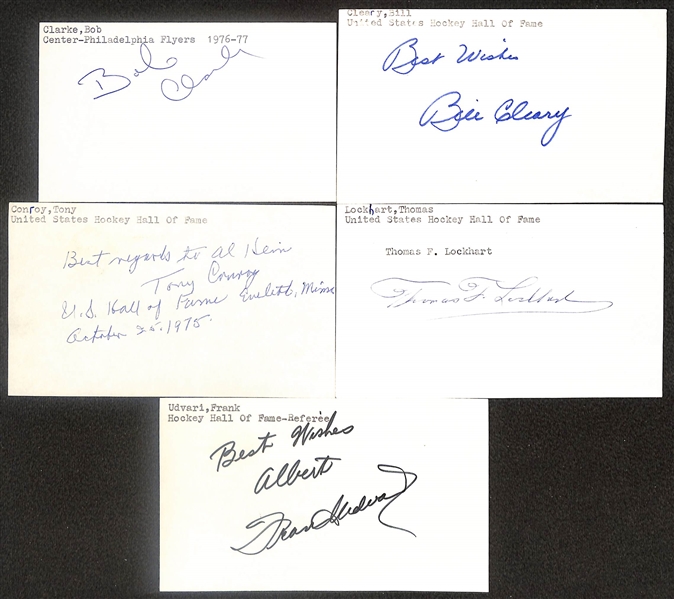 Clarke,Bob
Center-Philadelphia Flyers 1976-77
Bob Clarke
Cleary,Bill
United States Hockey Hall Of Fame
Best Wishes
Bill Cleary
Conroy,Tony
United States Hockey Hall Of Fame
Best regards to Al Hein
Tony Conroy
U.S. Hall of Fame Eveleth, Minn
October 25, 1975.
Lockhart,Thomas
United States Hockey Hall Of Fame
Thomas F. Lockhart
Thomas F. Lockhart
Udvari,Frank
Hockey Hall Of Fame-Referee
Best Wishes
Albert
Frank Udvari